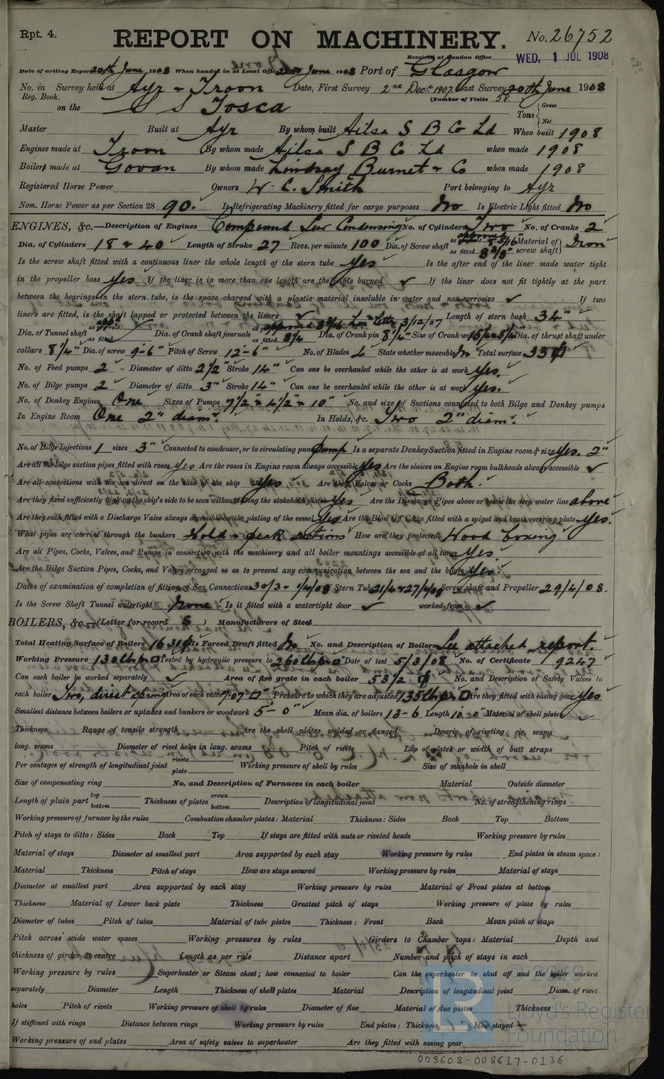 Rpt. 4.
REPORT ON MACHINERY.
No. 26752
Received at London Office
WED. 1 JUL 1908
Date of writing Report 20th June 1908 When handed in at Local Office June 1908 Port of Glasgow
No. in Survey held at Ayr & Troon Date, First Survey 2nd Decr 1907 Last Survey 20th June 1908
Reg. Book. (Number of Visits 58
on the S S Tosca Tons Gross Net
Master Built at Ayr By whom built Ailsa S B Co Ld When built 1908
Engines made at Troon By whom made Ailsa S B Co Ld when made 1908
Boilers made at Govan By whom made Lindsay Burnet & Co when made 1908
Registered Horse Power Owners W. C. Smith Port belonging to Ayr
Nom. Horse Power as per Section 28 90. Is Refrigerating Machinery fitted for cargo purposes No Is Electric Light fitted No
ENGINES, &c.—Description of Engines Compound Sur Condensing No. of Cylinders Two No. of Cranks 2
Dia. of Cylinders 18 & 40 Length of Stroke 27 Revs. per minute 100 Dia. of Screw shaft as fitted 8 5/8" Material of screw shaft Iron
Is the screw shaft fitted with a continuous liner the whole length of the stern tube yes Is the after end of the liner made water tight
in the propeller boss yes If the liner is in more than one length are the joints burned ✓ If the liner does not fit tightly at the part
between the bearings in the stern tube, is the space charged with a plastic material insoluble in water and non-corrosive ✓ If two
liners are fitted, is the shaft lapped or protected between the liners ✓ Length of stern bush 34"
Dia. of Tunnel shaft Dia. of Crank shaft journals as fitted 8 1/4 Dia. of Crank pin 8 1/4" Size of Crank webs Dia. of thrust shaft under
collars 8 1/4" Dia. of screw 9-6" Pitch of Screw 12-6" No. of Blades 4 State whether moveable No Total surface 35
No. of Feed pumps 2 Diameter of ditto 2 1/2" Stroke 14" Can one be overhauled while the other is at work yes.
No. of Bilge pumps 2 Diameter of ditto 3" Stroke 14" Can one be overhauled while the other is at work yes.
No. of Donkey Engines One Sizes of Pumps 7 1/2 × 4 1/2 × 10" No. and size of Suctions connected to both Bilge and Donkey pumps
In Engine Room One 2" diam. In Holds, &c. Two 2" diam.
No. of Bilge Injections 1 sizes 3" Connected to condenser, or to circulating pump Pump Is a separate Donkey Suction fitted in Engine room & size yes. 2"
Are all the bilge suction pipes fitted with roses yes Are the roses in Engine room always accessible yes Are the sluices on Engine room bulkheads always accessible ✓
Are all connections with the sea direct on the skin of the ship yes Are they Valves or Cocks Both.
Are they fixed sufficiently high on the ship's side to be seen without lifting the stokehold plates yes Are the Discharge Pipes above or below the deep water line above
Are they each fitted with a Discharge Valve always accessible on the plating of the vessel yes Are the Blow Off Cocks fitted with a spigot and brass covering plate yes.
What pipes are carried through the bunkers Hold & peak suctions How are they protected Wood casing
Are all Pipes, Cocks, Valves, and Pumps in connection with the machinery and all boiler mountings accessible at all times yes.
Are the Bilge Suction Pipes, Cocks, and Valves arranged so as to prevent any communication between the sea and the bilges yes.
Dates of examination of completion of fitting of Sea Connections Stern Tube Screw shaft and Propeller 29/4/08.
Is the Screw Shaft Tunnel watertight None Is it fitted with a watertight door ✓ worked from ✓
BOILERS, &c.— (Letter for record S) Manufacturers of Steel
Total Heating Surface of Boilers Is Forced Draft fitted No No. and Description of Boilers See attached report.
Working Pressure 130 lb p Tested by hydraulic pressure to 260 lb p Date of test 5/3/08 No. of Certificate 9247
Can each boiler be worked separately ✓ Area of fire grate in each boiler 53/2 No. and Description of Safety Valves to
each boiler Two, direct spring Area of each valve 7.07 Pressure to which they are adjusted 135 lb p Are they fitted with easing gear yes
Smallest distance between boilers or uptakes and bunkers or woodwork 5-0" Mean dia. of boilers 13-6 Length 10-0" Material of shell plates ✓
Thickness Range of tensile strength Are the shell plates welded or flanged Descrip. of riveting: cir. seams
long. seams Diameter of rivet holes in long. seams Pitch of rivets Lap of plates or width of butt straps
Per centages of strength of longitudinal joint rivets plate Working pressure of shell by rules Size of manhole in shell
Size of compensating ring No. and Description of Furnaces in each boiler Material Outside diameter
Length of plain part top bottom Thickness of plates crown bottom Description of longitudinal joint No. of strengthening rings
Working pressure of furnace by the rules Combustion chamber plates: Material Thickness: Sides Back Top Bottom
Pitch of stays to ditto: Sides Back Top If stays are fitted with nuts or riveted heads Working pressure by rules
Material of stays Diameter at smallest part Area supported by each stay Working pressure by rules End plates in steam space:
Material Thickness Pitch of stays How are stays secured Working pressure by rules Material of stays
Diameter at smallest part Area supported by each stay Working pressure by rules Material of Front plates at bottom
Thickness Material of Lower back plate Thickness Greatest pitch of stays Working pressure of plate by rules
Diameter of tubes Pitch of tubes Material of tube plates Thickness: Front Back Mean pitch of stays
Pitch across wide water spaces Working pressures by rules Girders to Chamber tops: Material Depth and
thickness of girder at centre Length as per rule Distance apart Number and pitch of stays in each
Working pressure by rules Superheater or Steam chest; how connected to boiler Can the superheater be shut off and the boiler worked
separately Diameter Length Thickness of shell plates Material Description of longitudinal joint Diam. of rivet
holes Pitch of rivets Working pressure of shell by rules Diameter of flue Material of flue plates Thickness
If stiffened with rings Distance between rings Working pressure by rules End plates: Thickness How stayed
Working pressure of end plates Area of safety valves to superheater Are they fitted with easing gear
Lloyd's Register
Foundation
003608-008617-0136